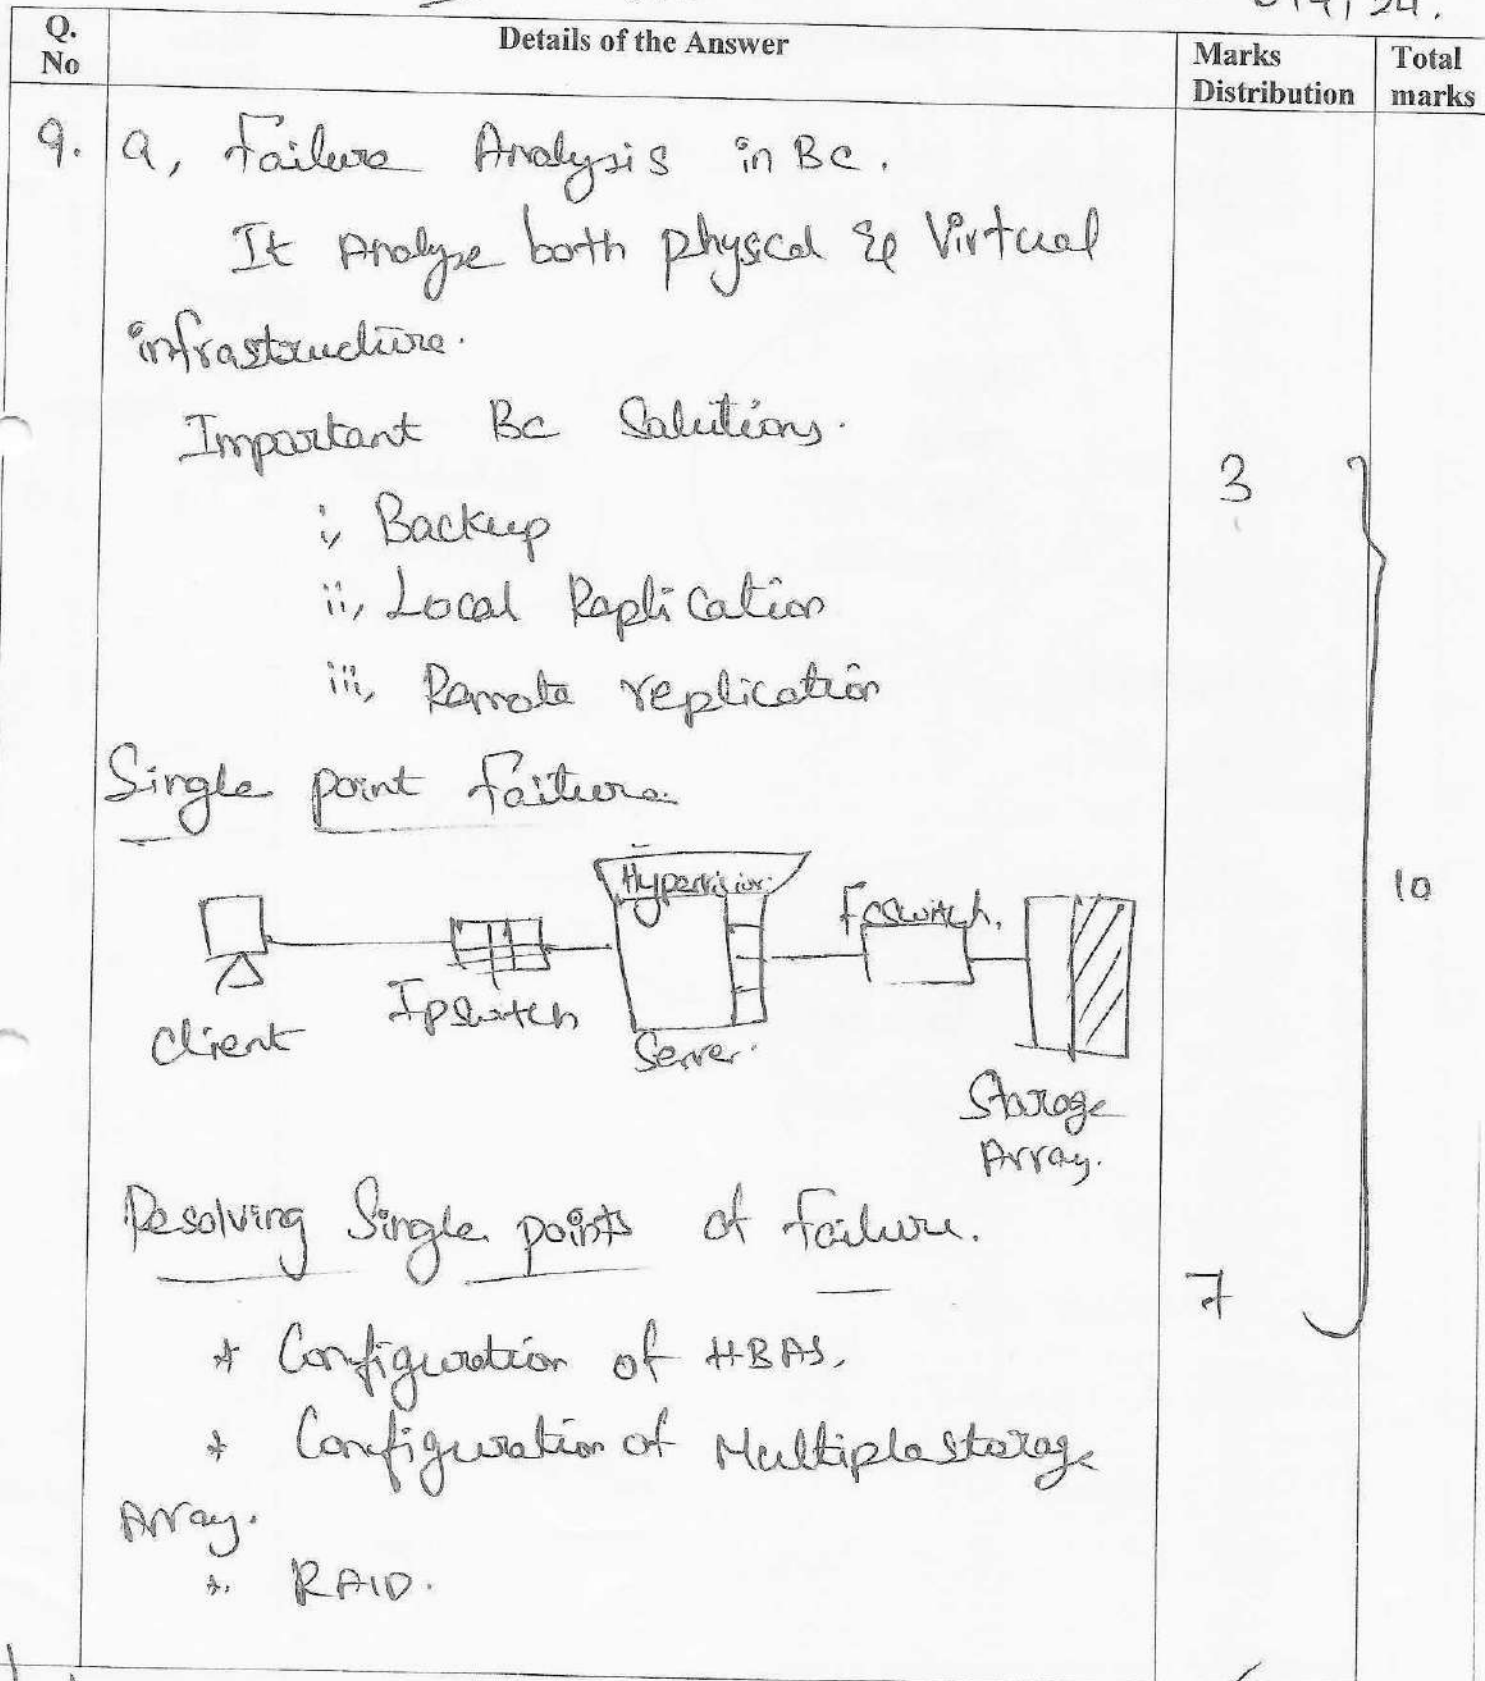 Q. No
Details of the Answer
Marks Distribution
Total marks
9. a, Failure Analysis in BC.
It Analyse both physical & Virtual
infrastructure.
Important BC Solutions.
3
i, Backup
ii, Local Replication
iii, Remote replication
Single point Failure
Hypervisior.
Fcswitch.
10
Client
Ipswitch
Server.
Storage
Array.
Resolving Single points of Failure.
7
* Configuration of HBAS.
* Configuration of Multiple storage
Array.
*. RAID.